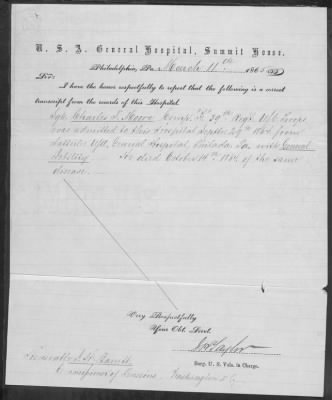 U. S. A. General Hospital, Summit House.
Philadelphia, Pa. March 11th 1865
Sir:
I have the honor respectfully to report that the following is a correct
transcript from the records of this Hospital.
Sgt. Charles S. Moore Comp. 39th Regt. Troops
was admitted to this Hospital Septbr. 29th 1864 from
Satterlee U.S.A. General Hospital, Philada. Pa. with General
Debility He died October 14th 1864 of the same
disease.
Very Respectfully
Your Obt. Servt.
Taylor
Surg. U. S. Vols. in Charge.
Commissioner of Pensions, Washington D.C.